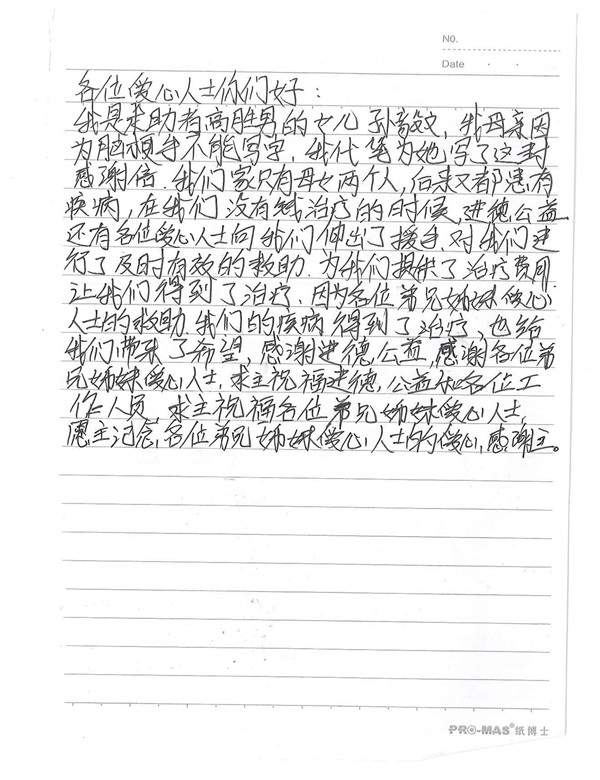 NO.
Date
各位爱心人士你们好：
我是求助者高胜男的女儿孙，我母亲因
为脑梗手不能写字，我代笔为她写了这封
感谢信。我们家只有母女两个人，后来又都患有
疾病，在我们没有钱治疗的时候，进德公益
还有各位爱心人士向我们伸出了援手，对我们进
行了及时有效的救助，为我们提供了治疗费用
让我们得到了治疗、因为各位弟兄姊妹爱心
人士的救助，我们的疾病得到了治疗，也给
我们带来了希望，感谢进德公益，感谢各位弟
兄姊妹爱心人士，求主祝福进德，公益和各位工
作人员，求主祝福各位弟兄姊妹爱心人士，
愿主记念，各位弟兄姊妹爱心人士的爱心，感谢主。
PRO-MAS®纸博士